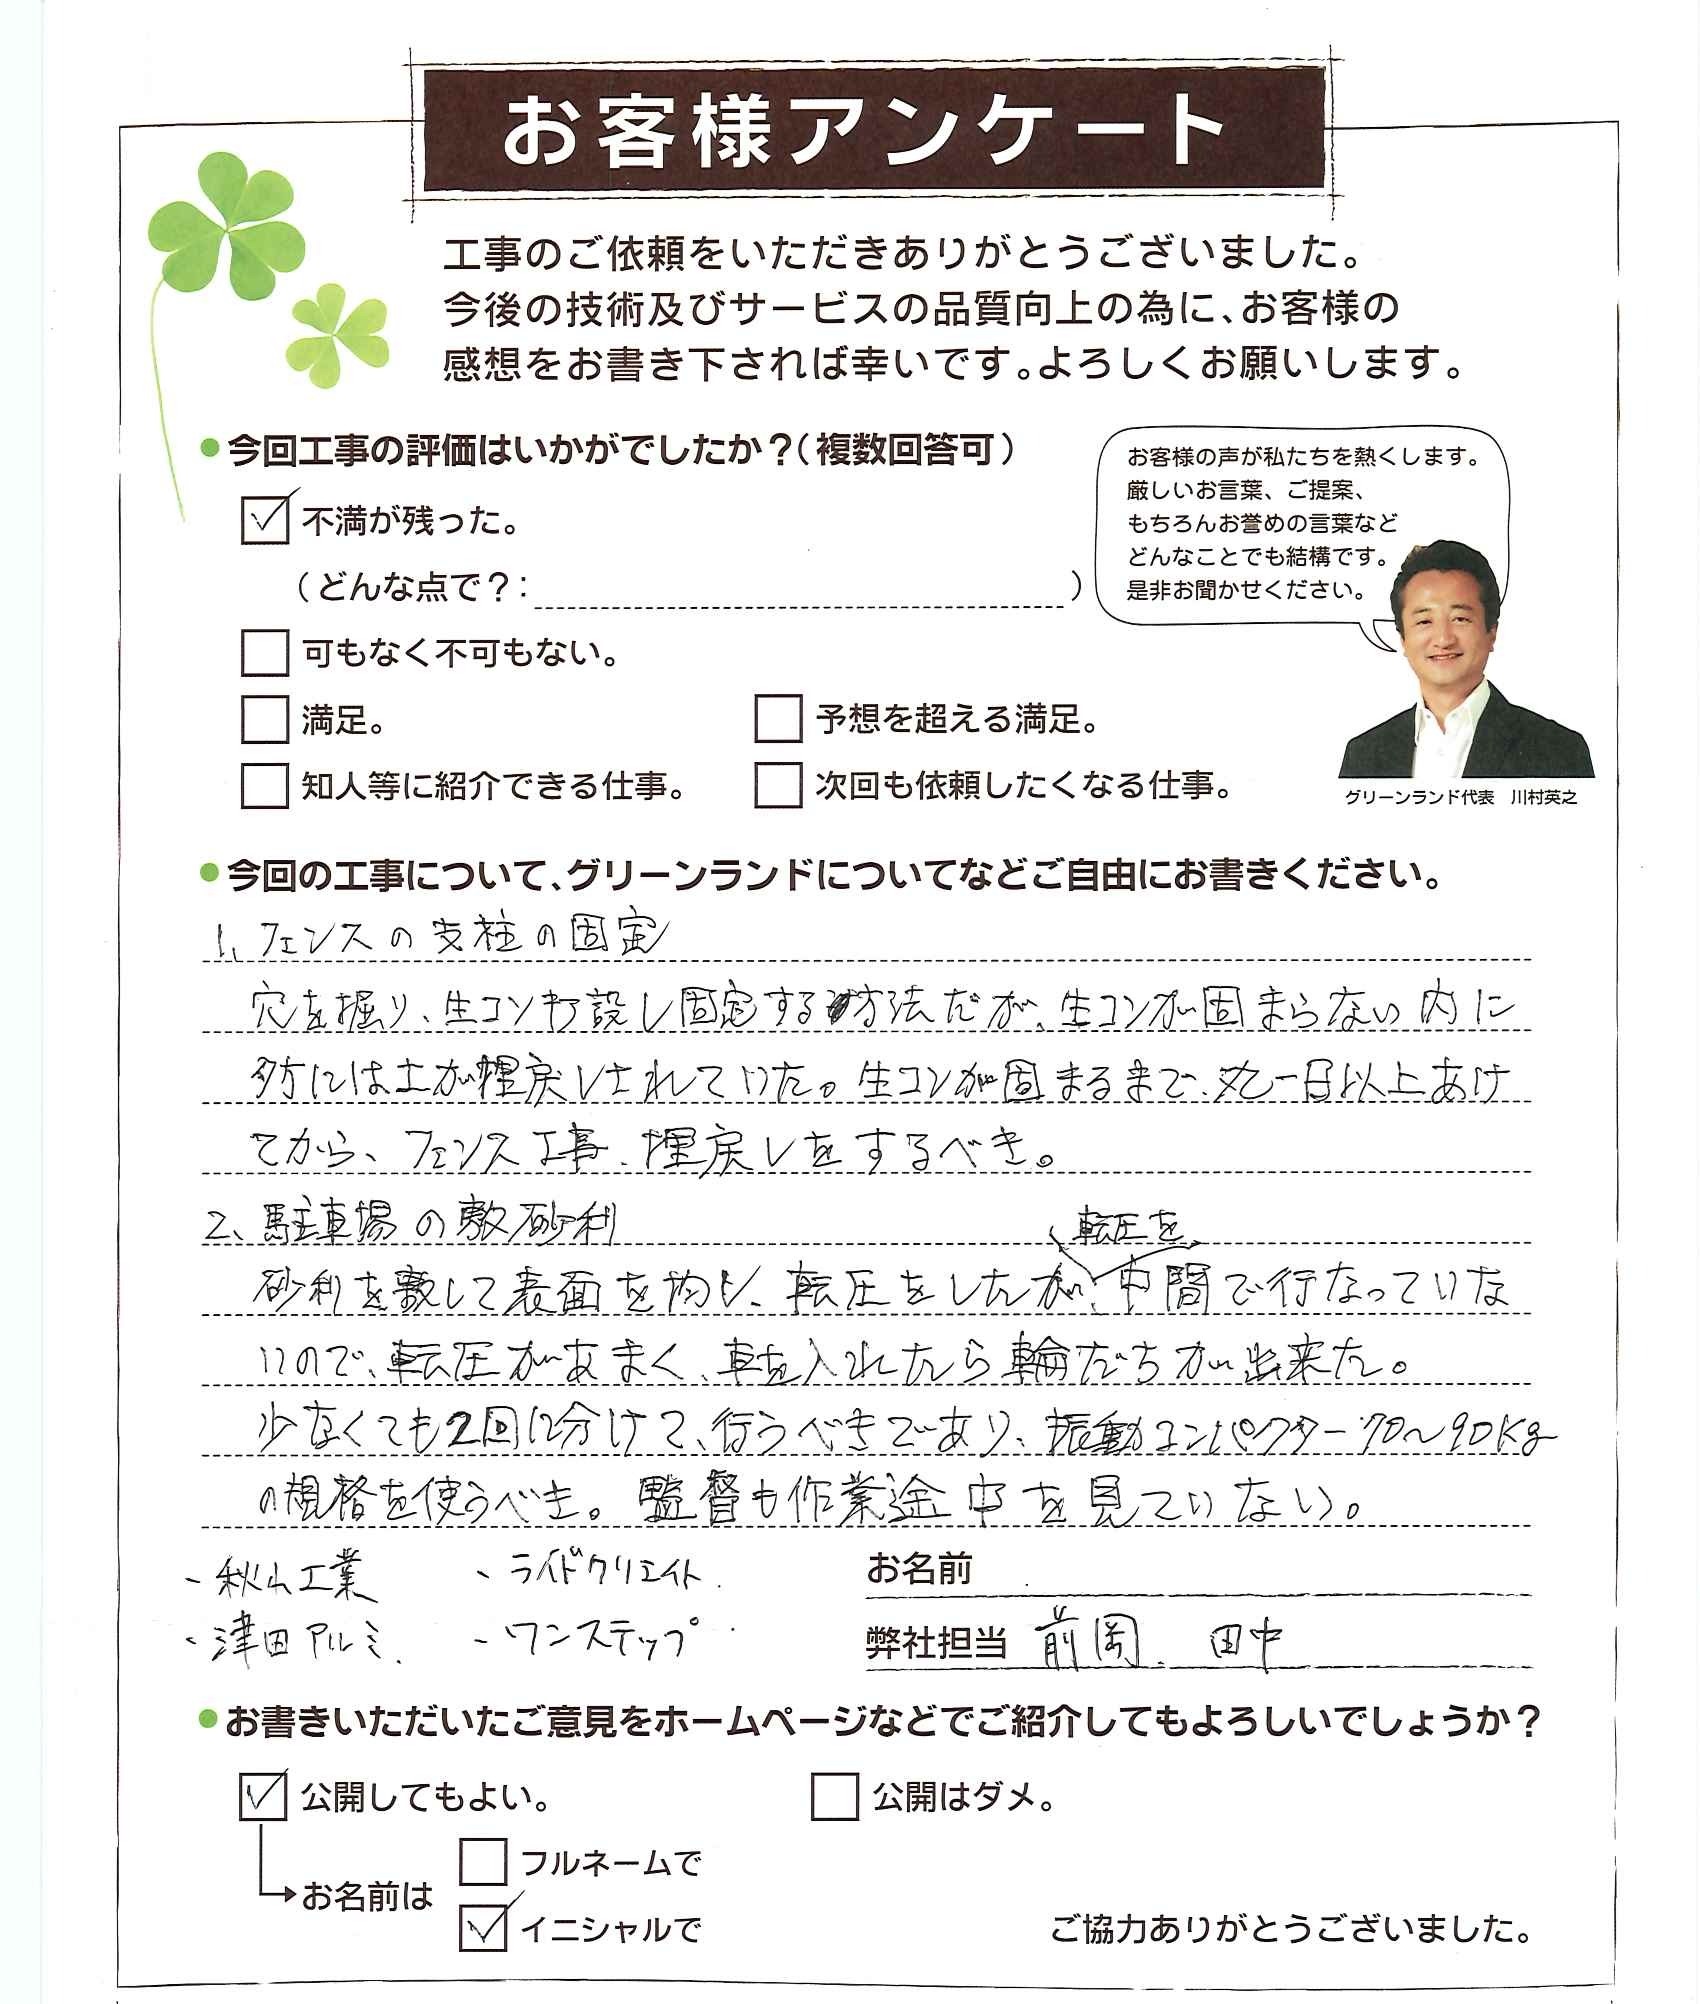 お客様アンケート
工事のご依頼をいただきありがとうございました。
今後の技術及びサービスの品質向上の為に、お客様の
感想をお書き下されば幸いです。よろしくお願いします。
●今回工事の評価はいかがでしたか？（複数回答可）
☑ 不満が残った。
（どんな点で？：　　　）
□ 可もなく不可もない。
□ 満足。　□ 予想を超える満足。
□ 知人等に紹介できる仕事。　□ 次回も依頼したくなる仕事。
お客様の声が私たちを熱くします。
厳しいお言葉、ご提案、
もちろんお誉めの言葉など
どんなことでも結構です。
是非お聞かせください。
グリーンランド代表　川村英之
●今回の工事について、グリーンランドについてなどご自由にお書きください。
1、フェンスの支柱の固定
穴を掘り、生コン打設し固定する方法だが、生コンが固まらない内に
夕方には土が埋戻しされていた。生コンが固まるまで、丸一日以上あけ
てから、フェンス工事、埋戻しをするべき。
2、駐車場の敷砂利
砂利を敷して表面を均し、転圧をしたが、転圧を中間で行なっていな
いので、転圧があまく、車を入れたら輪だちが出来た。
少なくても2回に分けて、行うべきであり、振動コンパクター70〜90kg
の規格を使うべき。監督も作業途中を見ていない。
、秋山工業　、ライドクリエイト
、津田アルミ　、ワンステップ
お名前
弊社担当 前岡、田中
●お書きいただいたご意見をホームページなどでご紹介してもよろしいでしょうか？
☑ 公開してもよい。　□ 公開はダメ。
お名前は
□ フルネームで
☑ イニシャルで
ご協力ありがとうございました。